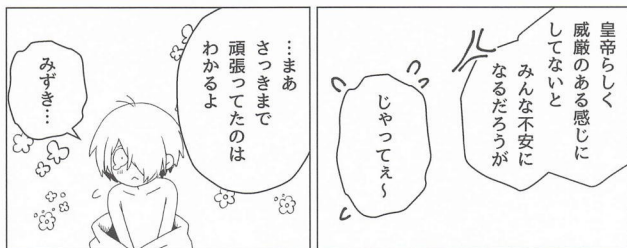 皇帝らしく
威厳のある感じに
してないと
みんな不安に
なるだろうが
じゃってぇ～
…まあ
さっきまで
頑張ってたのは
わかるよ
みずき…